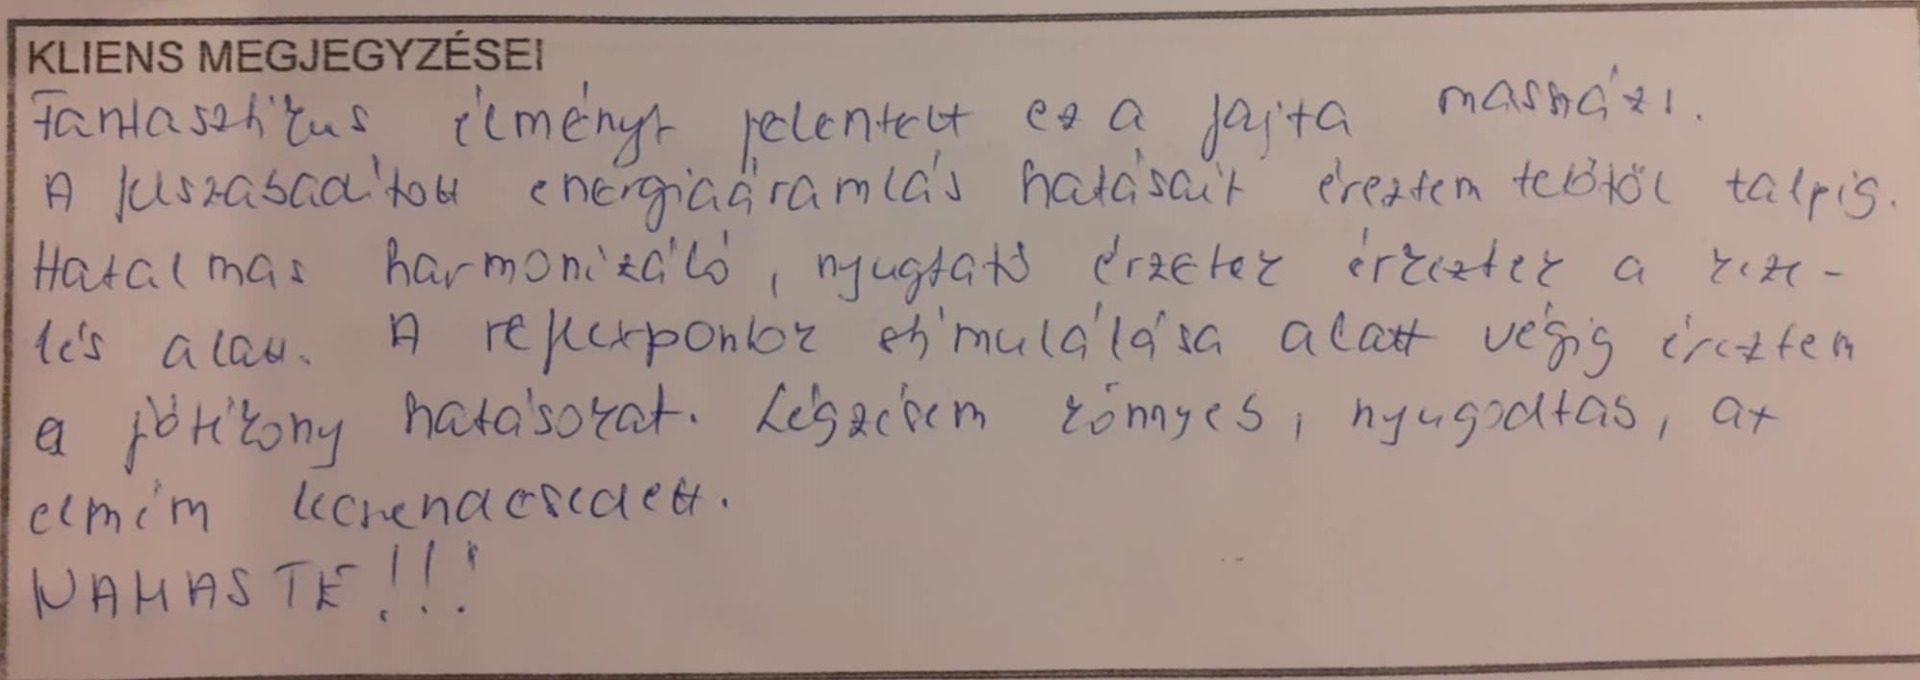 KLIENS MEGJEGYZÉSEI
Fantasztikus élményt jelentett ez a fajta masszázs.
A felszabadított energiaáramlás hatásait éreztem tetőtől talpig.
Hatalmas harmonizáló, nyugtató érzetek érkeztek a keze-
lés alatt. A reflexpontok stimulálása alatt végig éreztem
a jótékony hatásokat. Légzésem könnyes, nyugodtas, az
elmém lecsendesedett.
NAMASTE!!!